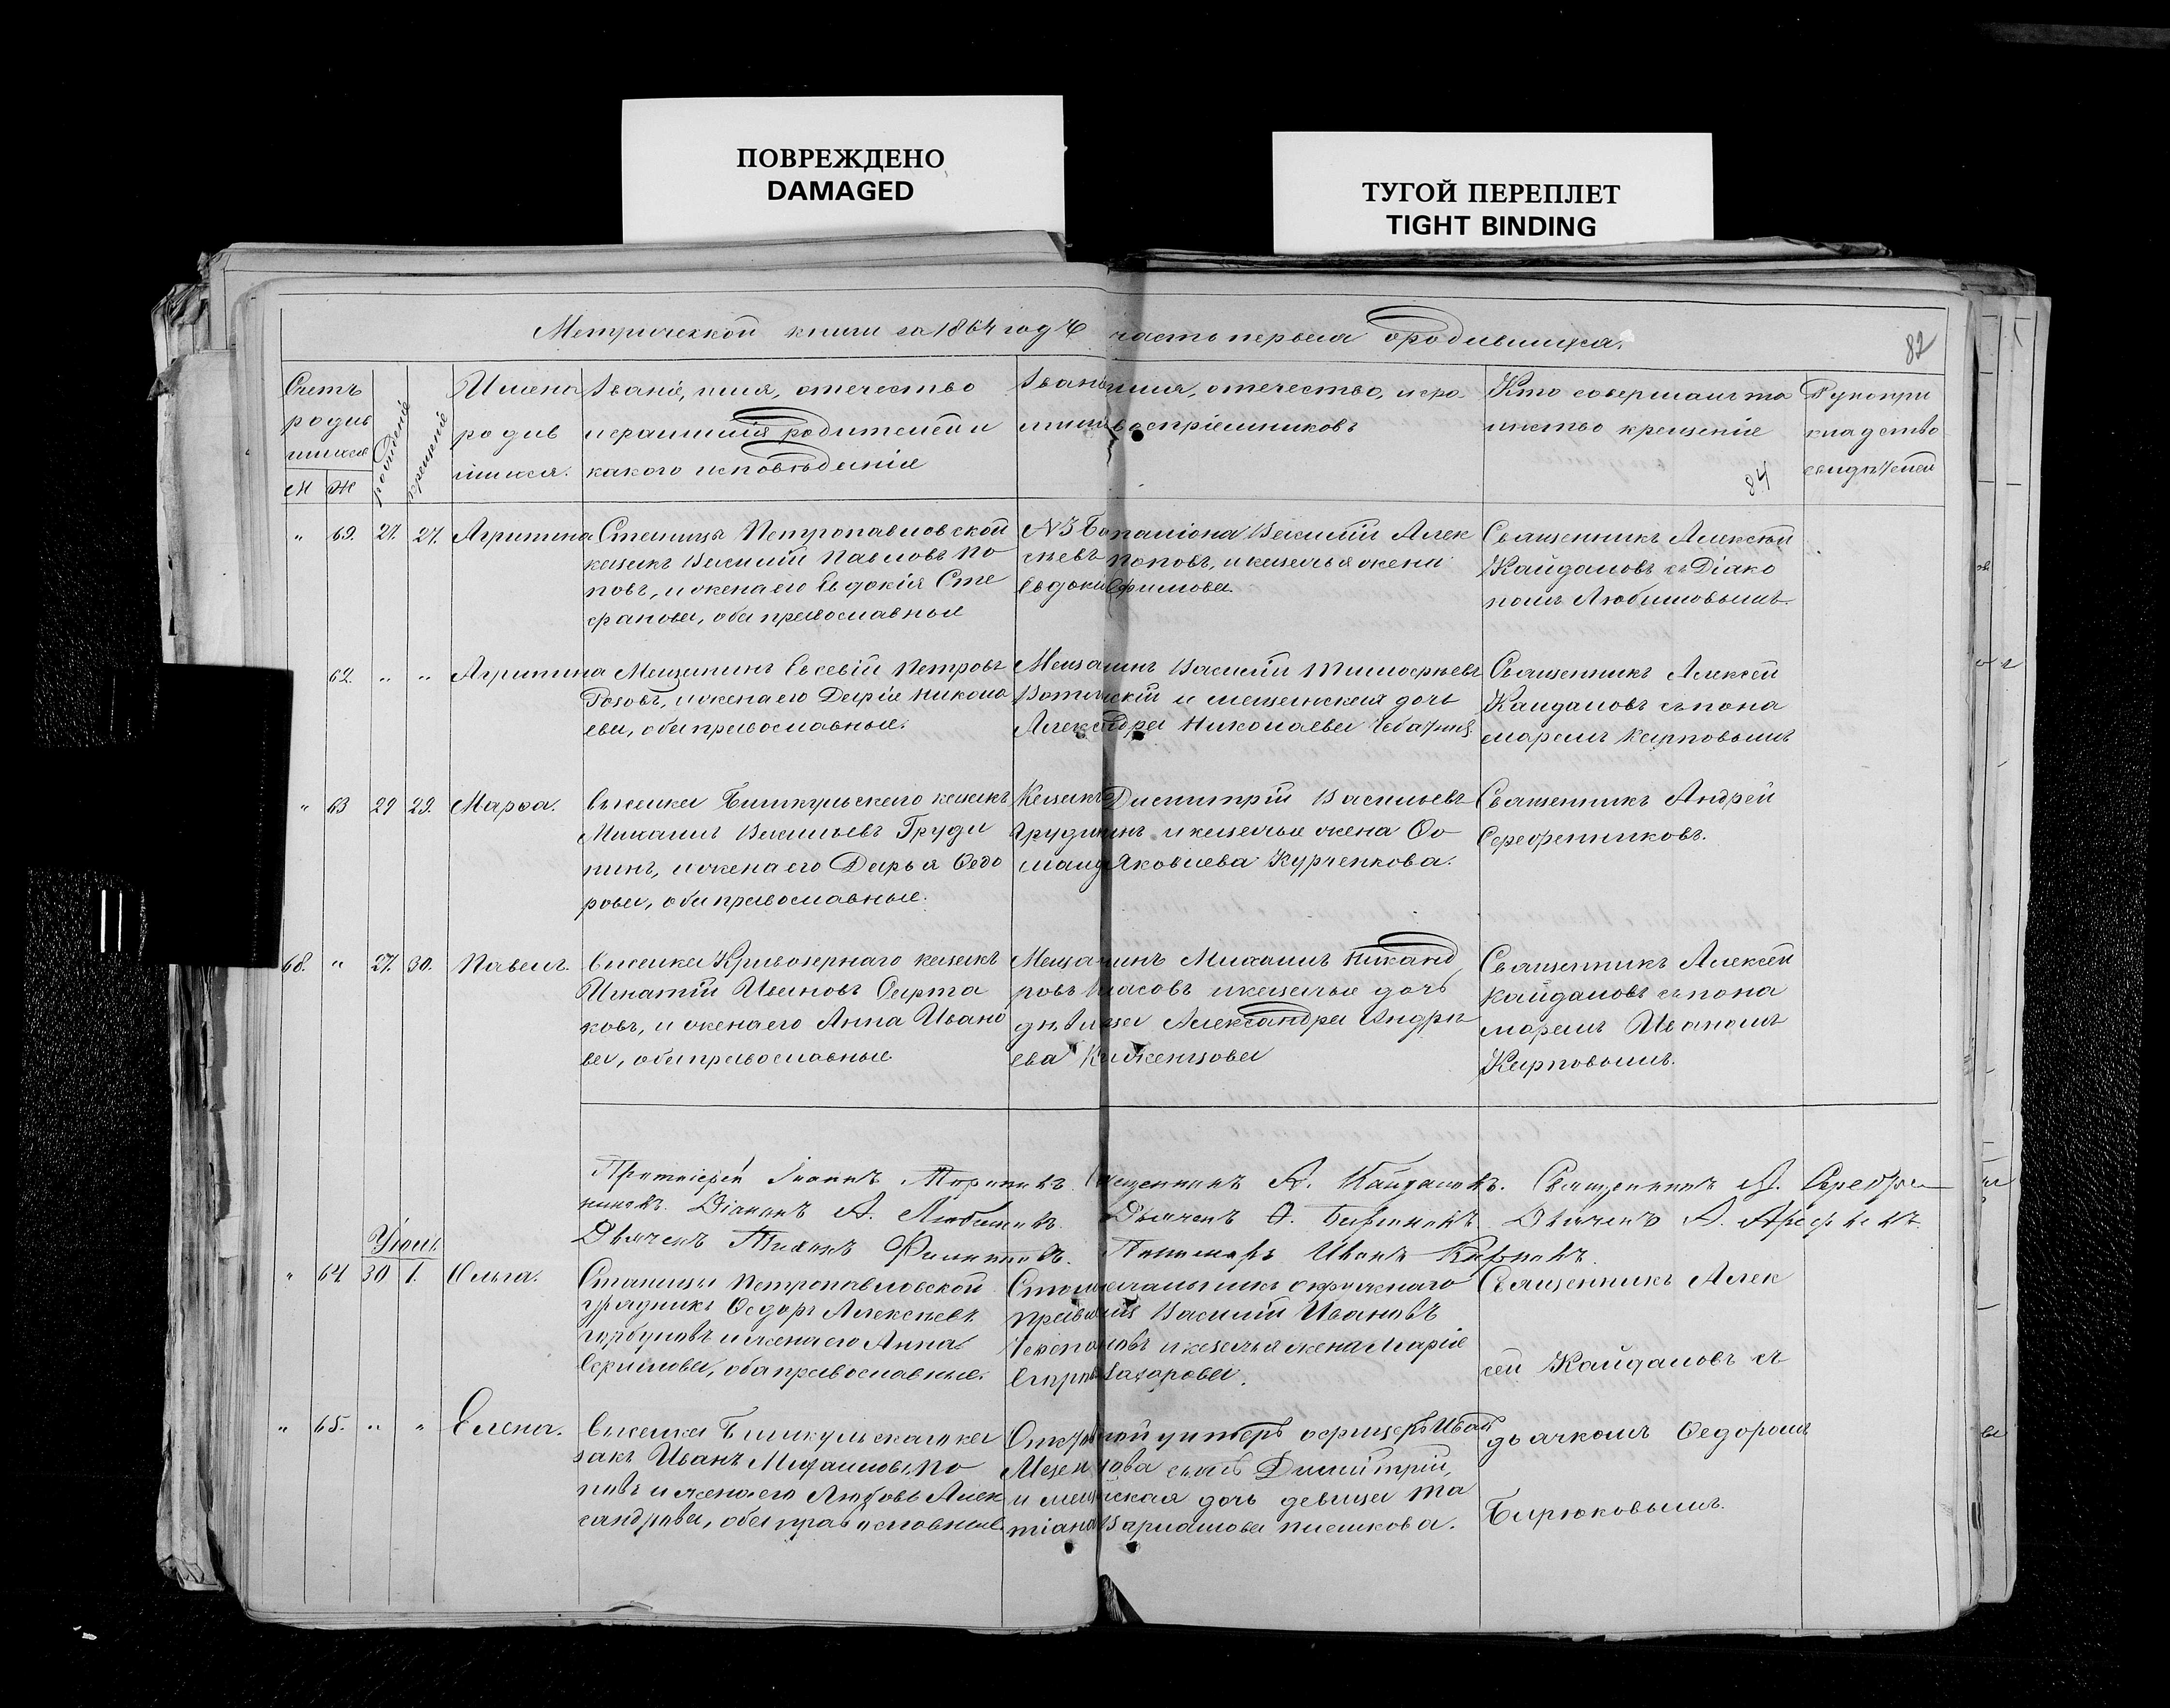 ПОВРЕЖДЕНО
DAMAGED
ТУГОЙ ПЕРЕПЛЕТ
TIGHT BINDING
Метрической книги за 1864 годъ часть первая о родившихся.
82
Счетъ родив шихся
М Ж
рожденiе
крещенiе
Имена родив шихся.
Званiе, имя, отечество
и фамилiя родителей и
какого исповѣданiя
Званiе имя, отечество, и фа
милiя воспрiемниковъ
Кто совершалъ та
инство крещенiе
84
Рукопри
кладство
свидѣтелей
" 69. 27. 27. Агрипина
Станицы Петропавловской
казакъ Василiй Павловъ По
повъ, и жена его Евдокiя Сте
фанова, оба православные
№3 Баталiона Василiй Алек
сѣевъ Поповъ, и казачья жена
Евдокiя Ефимова.
Священникъ Алексѣй
Кайдаловъ съ Дiако
номъ Любимовымъ.
62. " " Агрипина
Мещанинъ Евсевiй Петровъ
Розовъ, и жена его Дарiя Никола
ева, оба православные.
Мещанинъ Василiй Тимофѣевъ
и мещанская дочь
Александра Николаева
Священникъ Алексѣй
Кайдаловъ съ пона
маремъ Карповымъ
" 63 29 29. Марѳа.
Выселка Бишкульскаго казакъ
Михаилъ Васильевъ Груди
нинъ, и жена его Дарья Ѳедо
рова, оба православные.
Казакъ Димитрiй Васильевъ
Грудининъ и казачья жена Ѳо
маида Яковлева Курченкова.
Священникъ Андрей
Серебренниковъ.
68. " 27. 30. Павелъ.
Выселка Кривозернаго казакъ
Игнатiй Ивановъ Сирта
ковъ, и жена его Анна Ивано
ва, оба православные
Мещанинъ Михаилъ Никанд
ровъ Власовъ и казачья дочь
дѣвица Александра Андрѣ
ева
Священникъ Алексѣй
Кайдаловъ съ пона
маремъ Иваномъ
Карповымъ.
Протоiерей Iоаннъ Священникъ А. Кайдаловъ. Священникъ А. Серебрен
никовъ. Дiаконъ А. Любимовъ. Дьячекъ Ѳ. Бирюковъ. Дьячекъ А. Арефьевъ.
Дьячекъ Тихонъ Филипповъ. Пономарь Иванъ Карповъ.
Iюнь.
" 64 30 1. Ольга.
Станицы Петропавловской
урядникъ Ѳедоръ Алексѣевъ
Горбуновъ и жена его Анна
Серапiонова, оба православные.
Столоначальникъ окружнаго
правленiя Василiй Ивановъ
и казачья жена Марiя
Захарова.
Священникъ Алек
сѣй Кайдаловъ съ
" 65. " " Елена.
Выселка Бишкульскаго ка
закъ Иванъ Михаиловъ По
повъ и жена его Любовь Алек
сандрова, оба православные.
Отставной унтеръ офицеръ Иванъ
сынъ Димитрiй,
и мещанская дочь девица Та
тiана Варламова Пешкова.
дьячкомъ Ѳедоромъ
Бирюковымъ.